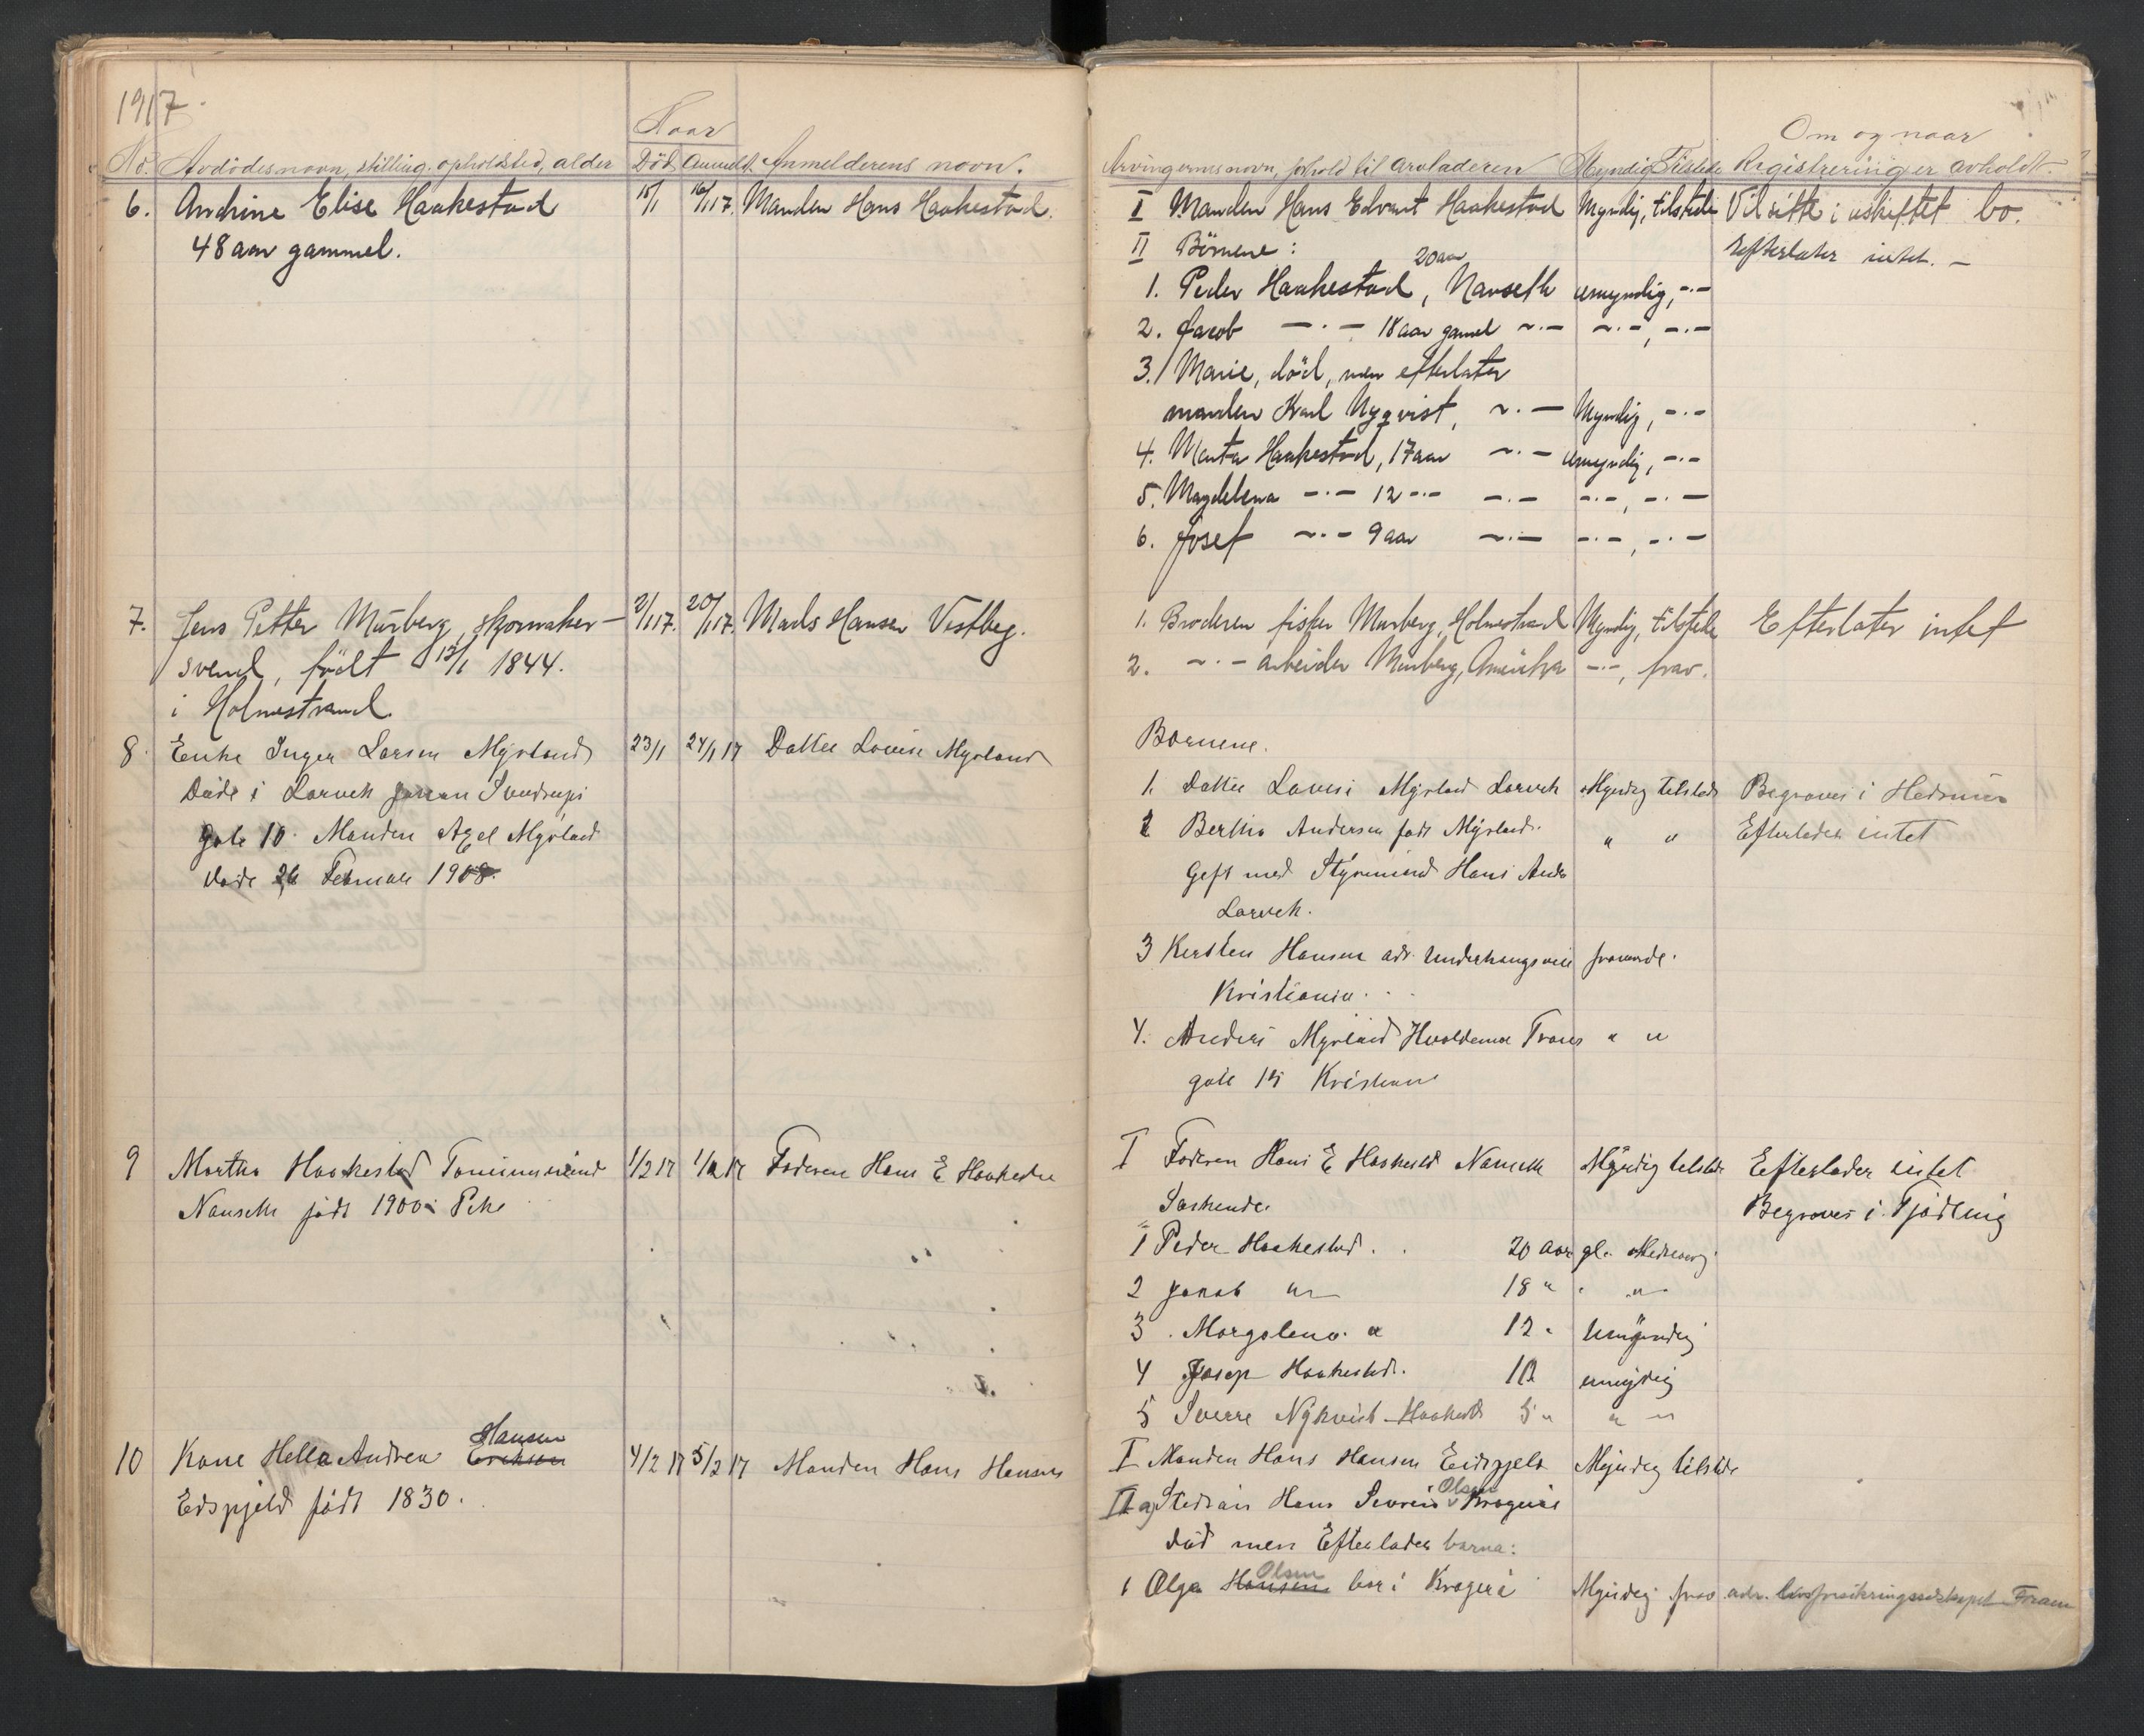 1917.
Naar
No. Avdödes navn, stilling, opholdsted, alder Död Anmeldt Anmelderens navn.
6. Andrine Elise Haakestad 15/1 16/1 17. Manden Hans Haakestad.
48 aar gammel.
7. Jens Petter Murberg, skomaker- 2/1 17. 20/1 17. Mads Hansen Vestbeg.
svend, födt 13/1 1844.
i Holmestrand.
8. Enke Inger Larsen Myrland 23/1 24/1 17 Datter Lovise Myrland
Döde i Larvek Johan Sverdrups
gate 10. Manden Axel Myrland
döde 26 Februar 1908.
9 Martha Haakestad 1/2 17 1/2 17 Faderen Hans E Haakestad
Nanseth födt 1900 Pike
10 Kone Hella Andrea Hansen Eriksen 4/2 17 5/2 17 Manden Hans Hansen
Eidspjeld födt 1830.
Om og naar
Arvingernes navn, forhold til arveladeren Myndig Tilstede Registreringer avholdt.
I Manden Hans Edvart Haakestad Myndig, tilstede Vil sitte i uskiftet bo.
II Börnene: Efterlater intet. —
20 aar
1. Peder Haakestad, Nanseth umyndig, -·-
2. Jacob —·— 18 aar gamel ~·— ~·—, —·—
3. Marie, död, men efterlater
manden Karl Nyqvist, ~·— Myndig, -·-
4. Marta Haakestad, 17 aar ~·— umyndig, -·-
5. Magdelena -·- 12 -·- -·- -·-, -·—
6. Josef ~·- 9 aar ~·— -·-, -·-
1. Broderen fisker Murberg, Holmestrand Myndig, tilstede Efterlater intet
2. ~·- arbeider Murberg, Amerika -·-, frav.
Börnene.
1. Datter Lovise Myrland Larvek Myndig tilstede Begraves i Hedrum
2 Bertha Andersen födt Myrland. " " Efterlader intet
Gift med Styrmand Hans Anders
Larvek.
3 Kersten Hansen adr. Underhaugsveie fravende.
Kristiania.
4. Anders Myrland Hvaldemar Tranes " "
gate 15 Kristiania
I Faderen Hans E Haakestad Nanseth Myndig tilstede Efterlader intet
Söskende. Begraves i Tjödling
1 Peder Haakestad. 20 aar gl. Medverg
2 Jakob " 18 " "
3. Margalena " 12 " Umyndig
4 Josep Haakestad. 10 umyndig
5 Sverre Nykvist Haakestad 5 " " "
I Manden Hans Hansen Eidspjeld Myndig tilstede
II a) Stedsön Hans Severin Olsen Kragerö
död men Efterlader barna:
1 Olga Hansen Olsen bor i Kragerö Myndig frav. adr. livsforsikringsselskapet Fram